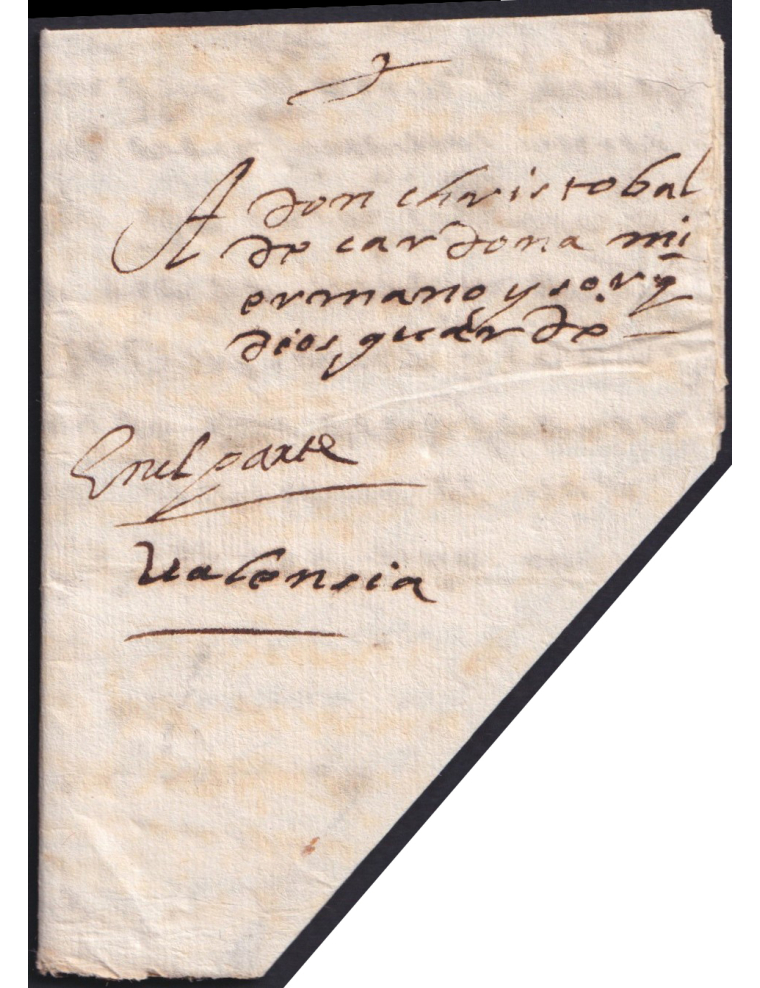 A don christobal
de cardona mi
ermano y sor q̄
dios guarde
En el parte
Valensia